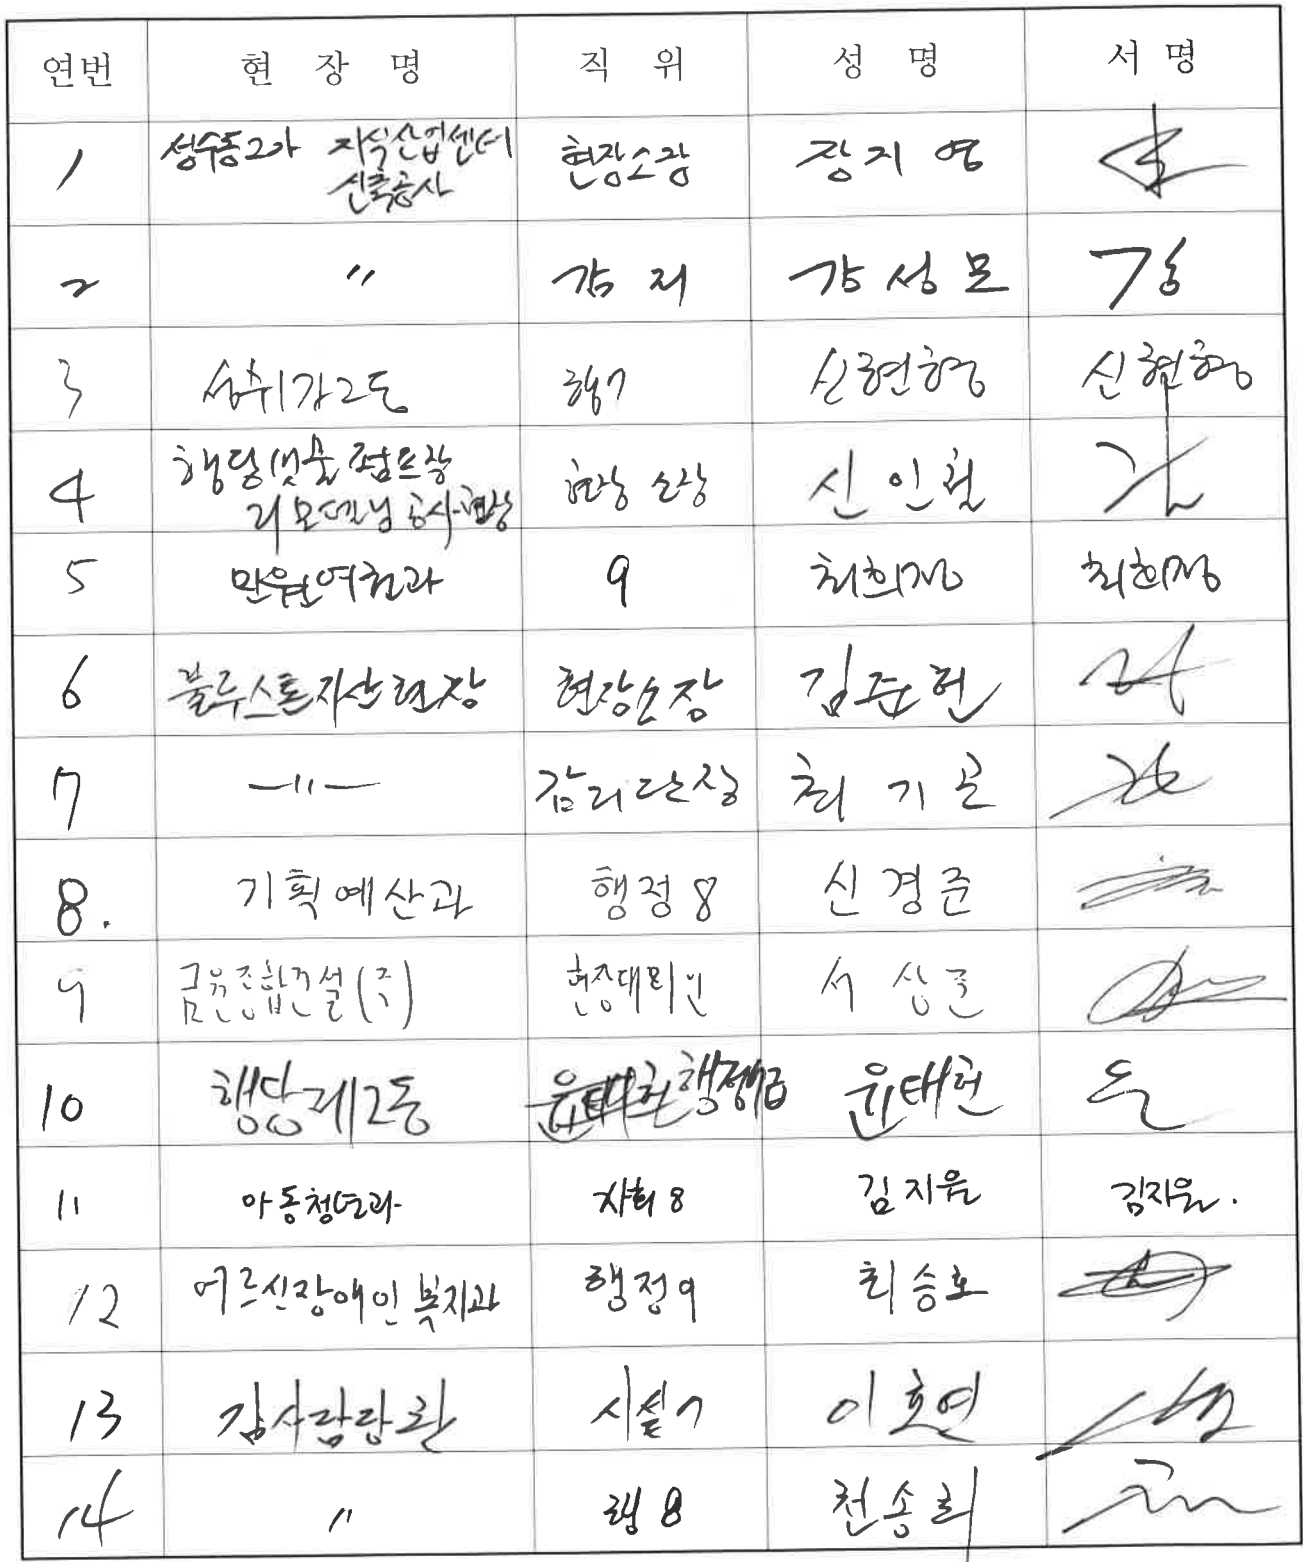 연번 현 장 명 직 위 성 명 서 명
1 성수동2가 지식산업센터 현장소장 장지영
신축공사
2 〃 감리 강성모 강
3 성수1가2동 행7 신현형 신현형
4 행당빗물펌프장 현장소장 신인철
리모델링 공사현장
5 민원여권과 9 최희정 최희정
6 블루스톤자산현장 현장소장 김준현
7 —〃— 감리단장 최기곤
8. 기획예산과 행정8 신경준
9 금유종합건설(주) 현장대리인 서상준
10 행당제2동 윤태헌 행정 윤태헌
11 아동청년과 사회8 김지윤 김지윤.
12 어르신장애인복지과 행정9 최승호
13 감사담당관 시설7 이호연
14 〃 행8 천송희